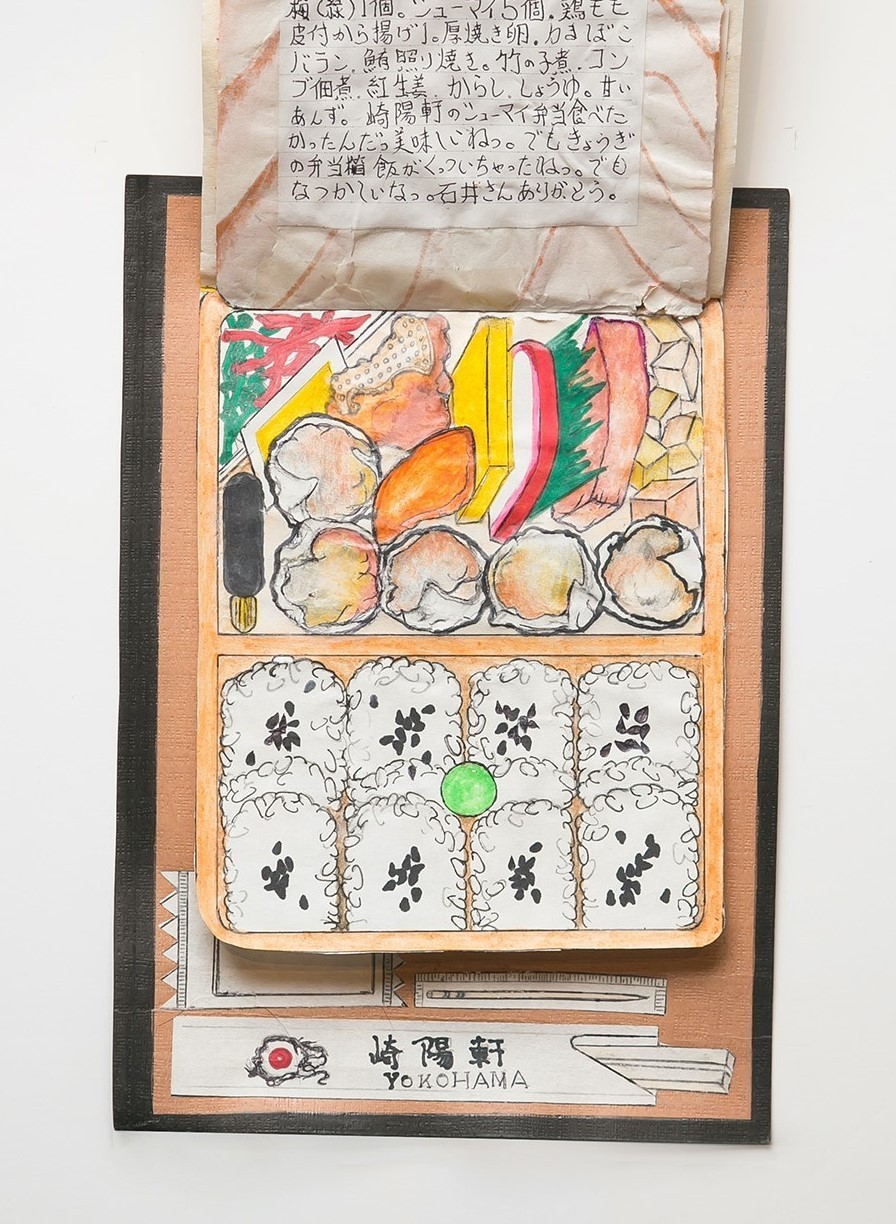 梅(緑)1個。シューマイ5個.鶏もも
皮付から揚げ1。厚焼き卵.カまぼこ
バラン.鮪照り焼き。竹の子煮.コン
ブ佃煮.紅生姜.からし.しょうゆ。甘い
あんず。崎陽軒のシューマイ弁当食べた
かったんだっ美味しいねっ。でもきょうぎ
の弁当箱飯がくっついちゃったねっ。でも
なつかしいなっ。石井さんありがとう。
崎陽軒
YOKOHAMA